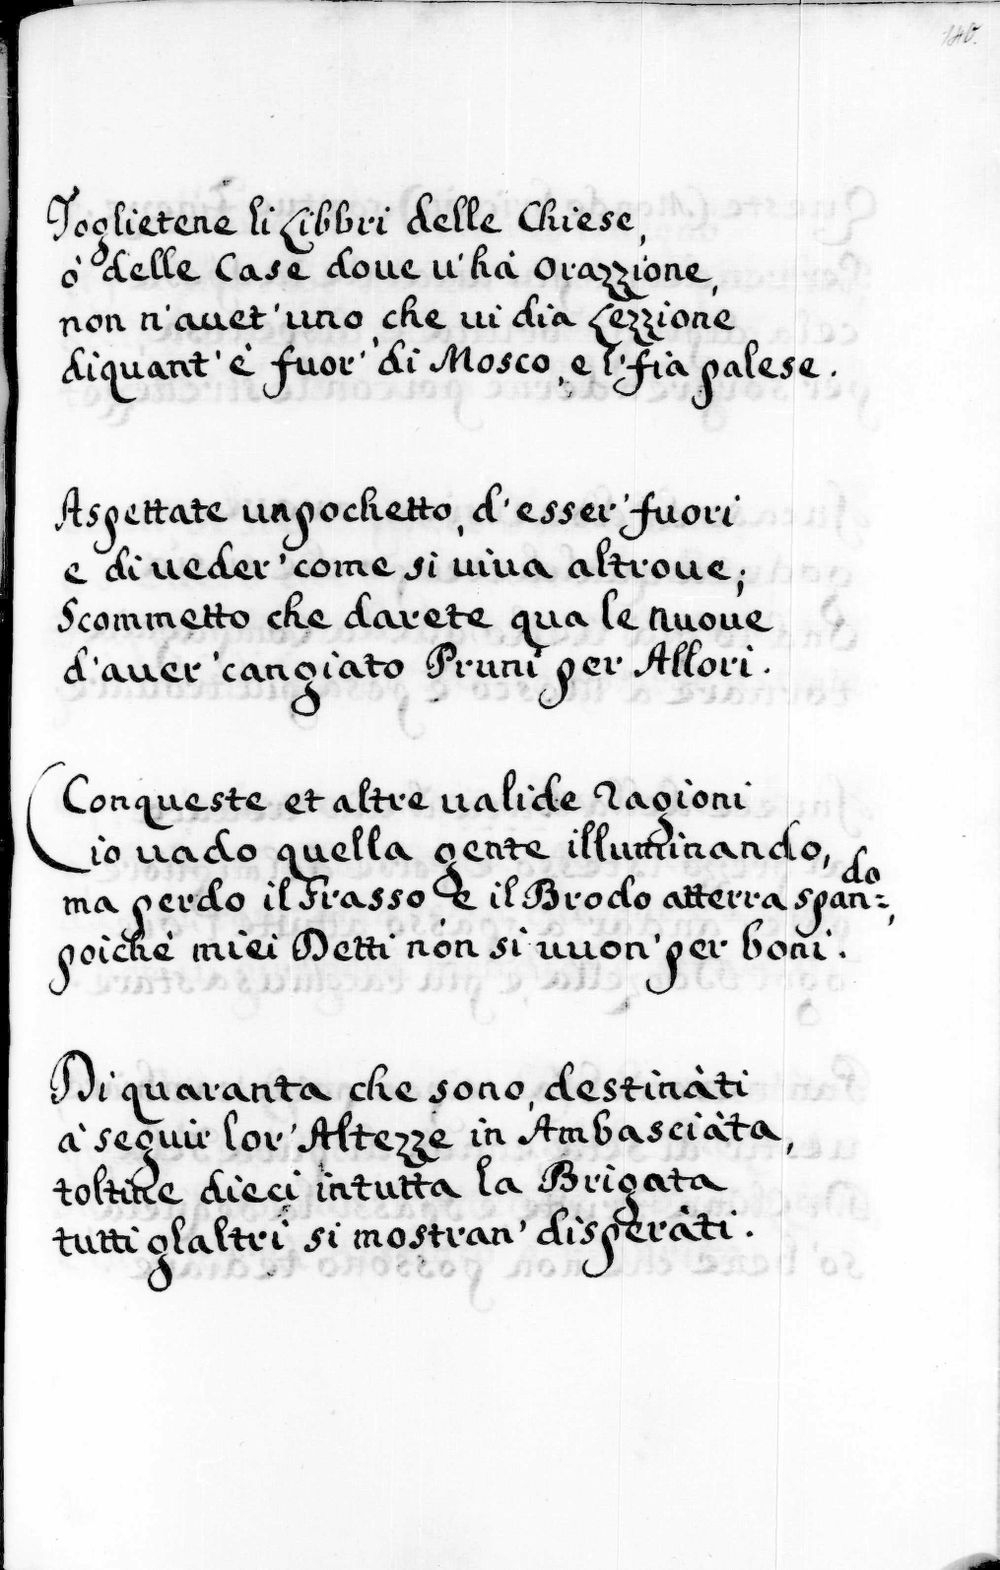 146.
Toglietene li Libbri delle Chiese,
ò delle Case doue u'hà Orazzione,
non n'auet'uno che ui dia Lezzione
diquant'è fuor'di Mosco, e l'fia palese.
Aspettate unpochetto, d'esser'fuori
e di ueder'come si uiua altroue;
Scommetto che darete qua le nuoue
d'auer'cangiato Pruni per Allori.
Conqueste et altre ualide Ragioni
io uado quella gente illuminando,
ma perdo il Frasso e il Brodo atterra span=do,
poiche miei Detti non si uuon'per boni.
Di quaranta che sono, destinàti
à seguir lor'Altezze in Ambasciàta,
toltine dieci intutta la Brigata
tutti glaltri si mostran'disperàti.